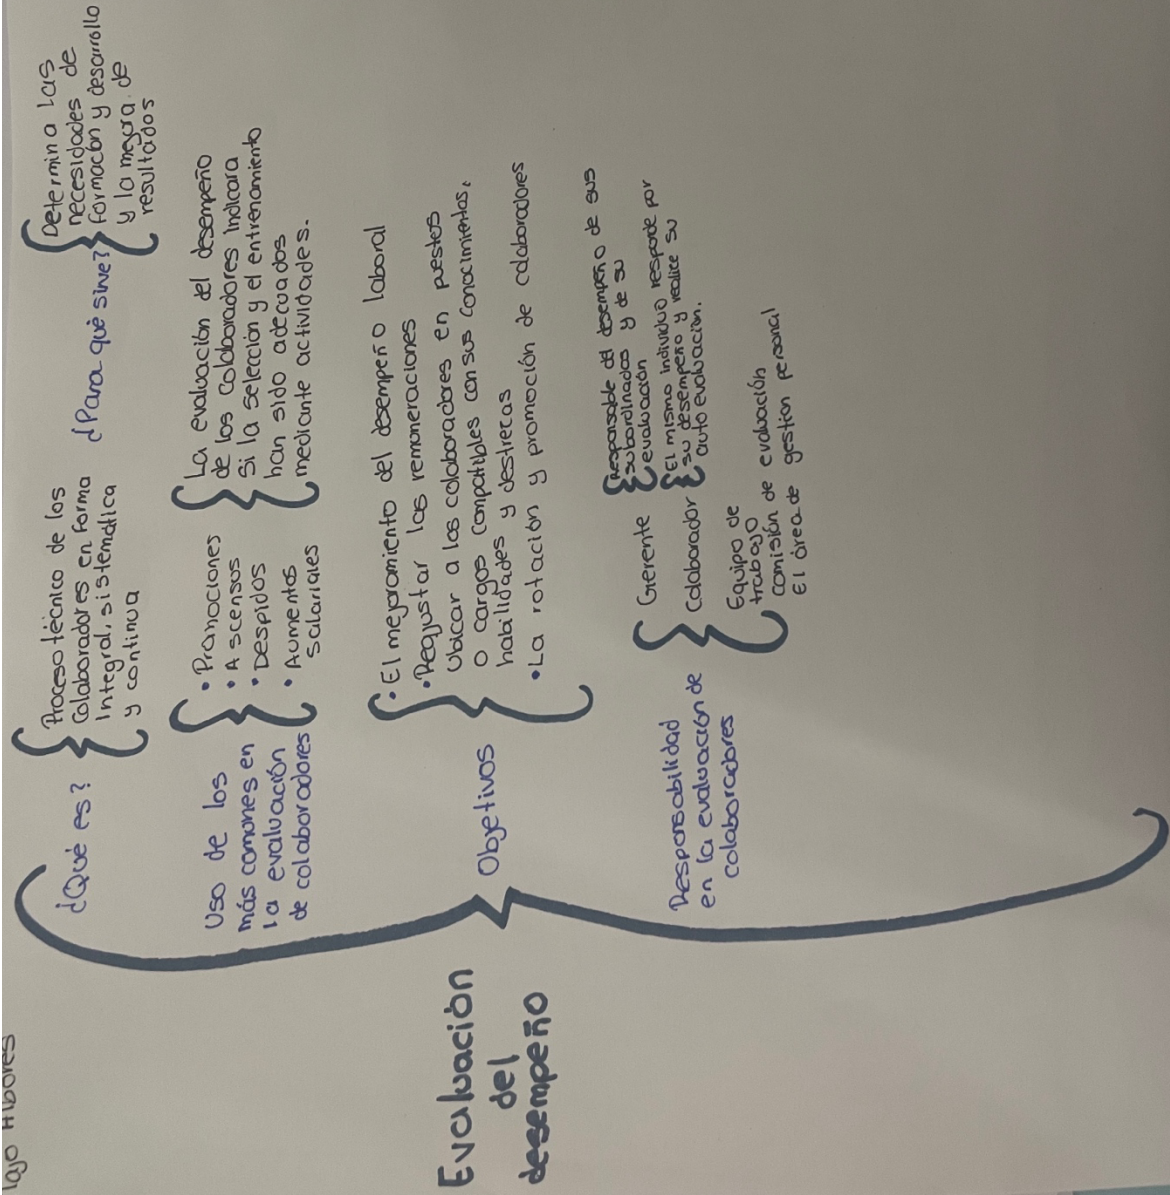 Evaluación
del
desempeño
¿Qué es?
Proceso técnico de los
Colaboradores en forma
Integral, sistemática
y continua
¿Para qué sirve?
Determina las
necesidades de
formación y desarrollo
y la mejora de
resultados
Uso de los
más comunes en
la evaluación
de colaboradores
• Promociones
• Ascensos
• Despidos
• Aumentos
salariales
La evaluación del desempeño
de los colaboradores indicara
Si la selección y el entrenamiento
han sido adecuados
mediante actividades.
Objetivos
• El mejoramiento del desempeño laboral
• Reajustar las remuneraciones
Ubicar a los colaboradores en puestos
o cargos compatibles con sus conocimientos,
habilidades y destrecas
• La rotación y promoción de colaboradores
Responsabilidad
en la evaluación de
colaboradores
Gerente
Responsable del desempeño de sus
subordinados y de su
evaluación
Colaborador
El mismo individuo responde por
su desempeño y realice su
auto evaluación.
Equipo de
trabajo
Comisión de evaluación
El área de gestión personal